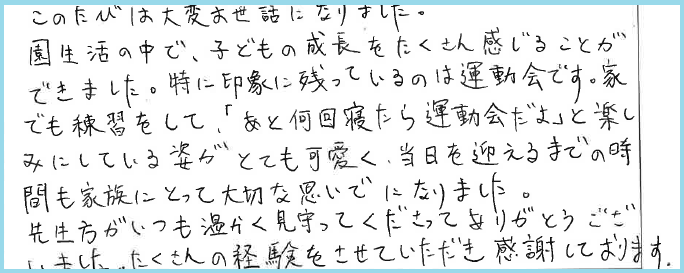 このたびは大変お世話になりました。
園生活の中で、子どもの成長をたくさん感じることが
できました。特に印象に残っているのは運動会です。家
でも練習をして、「あと何回寝たら運動会だよ」と楽し
みにしている姿がとても可愛く、当日を迎えるまでの時
間も家族にとって大切な思いでになりました。
先生方がいつも温かく見守ってくださってありがとうござ
いました。たくさんの経験をさせていただき感謝しております。